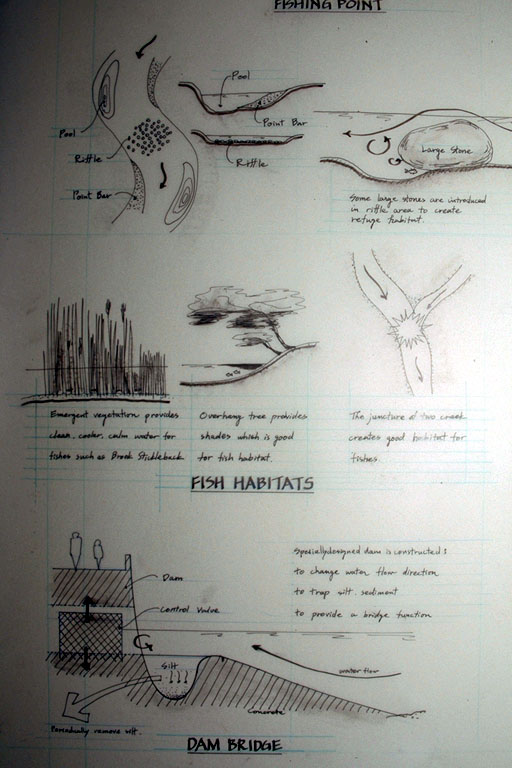 FISHING POINT
Pool
Pool
Point Bar
Riffle
Riffle
Point Bar
Large Stone
Some large stones are introduced
in riffle area to create
refuge habitat.
Emergent vegetation provides
clean, cooler, calm water for
fishes such as Brook Stickleback
Overhang tree provides
shades which is good
for fish habitat.
The juncture of two creek
creates good habitat for
fishes.
FISH HABITATS
Specially designed dam is constructed:
to change water flow direction
to trap silt, sediment
to provide a bridge function
Dam
Control Valve
Silt
water flow
Concrete
Periodically remove silt.
DAM BRIDGE